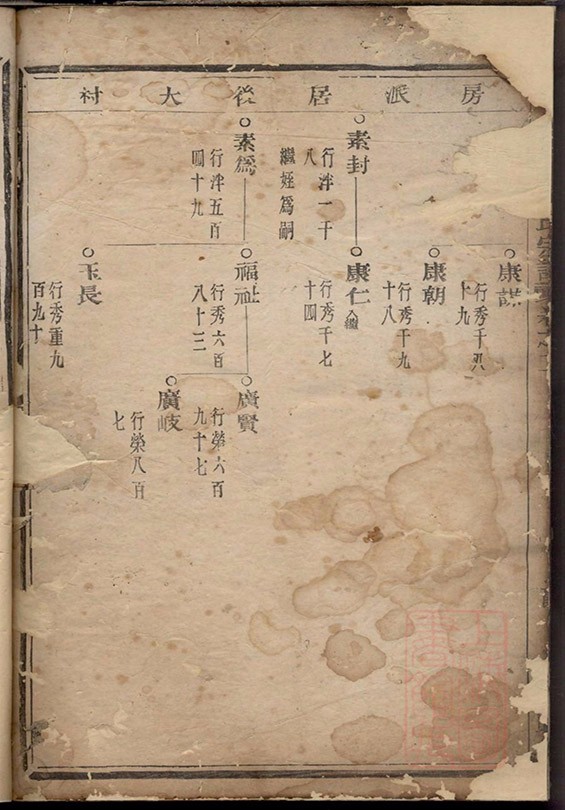 房派居後大村
康謀
行秀千八
十九
康朝
行秀千九
十八
素封
行泮一千
八
繼姪為嗣
康仁入繼
行秀千七
十四
素為
行泮五百
四十九
福祉
行秀六百
八十三
廣賢
行榮六百
九十七
廣岐
行榮八百
七
玉長
行秀重九
百九十